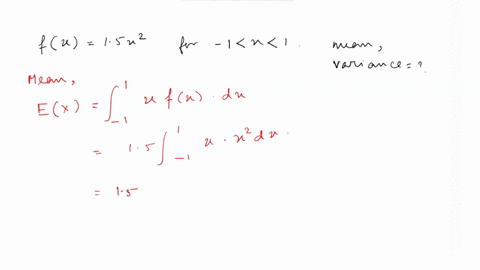 f(x) = 1.5x² for -1 < x < 1. mean, variance = ?
Mean,
E(x) = ∫₋₁¹ x f(x) · dx
= 1.5 ∫₋₁¹ x · x² dx.
= 1.5